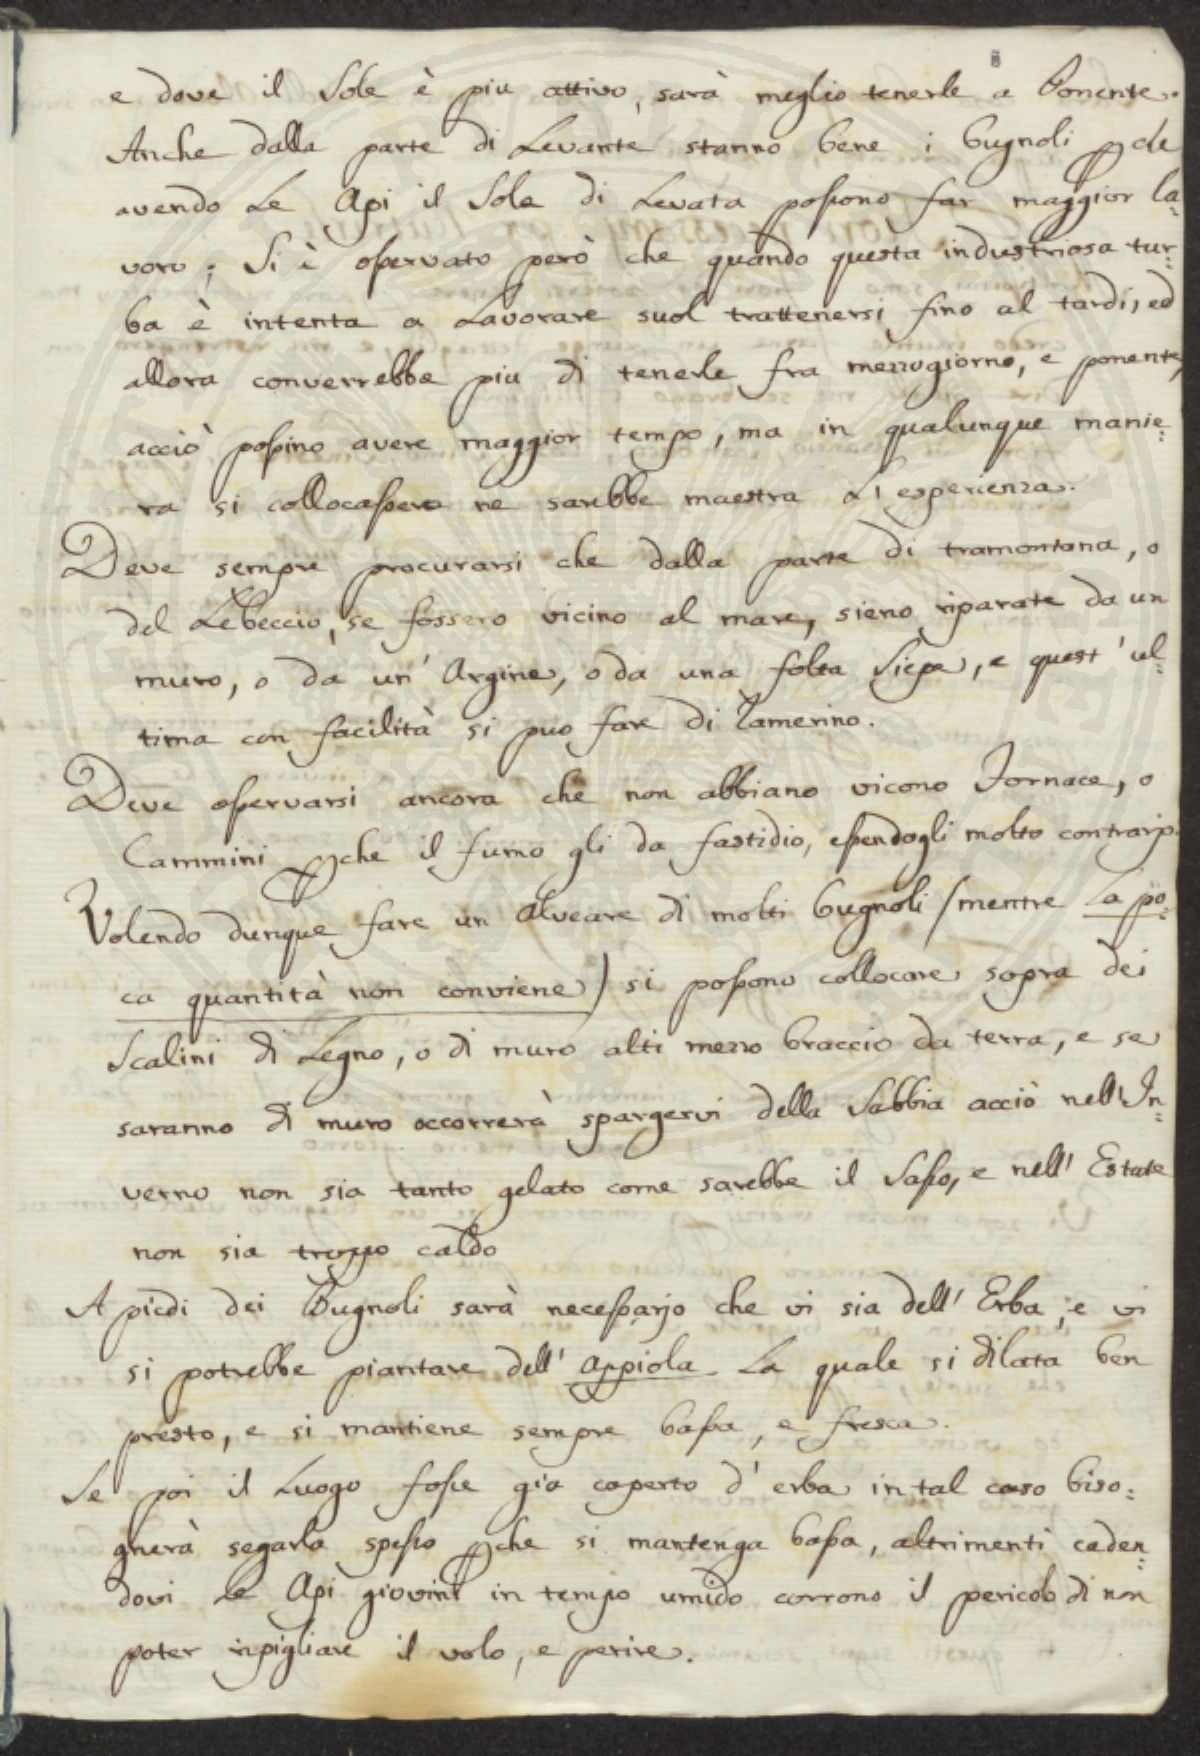 e dove il Sole è piu attivo, sarà meglio tenerle a Ponente.
Anche dalla parte di Levante stanno bene i bugnoli pche
avendo Le Api il Sole di Levata possono far maggior la=
voro; Si è osservato però che quando questa industriosa tur=
ba è intenta a Lavorare suol trattenersi fino al tardi, ed
allora converrebbe piu di tenerle fra mezzogiorno, e ponente,
acciò possino avere maggior tempo, ma in qualunque manie=
ra si collocassero ne sarebbe maestra L'esperienza.
Deve sempre procurarsi che dalla parte di tramontana, o
del Lebeccio, se fossero vicino al mare, sieno riparate da un
muro, o da un' Argine, o da una folta Siepe, e quest' ul=
tima con facilità si puo fare di Ramerino.
Deve osservarsi ancora che non abbiano vicono Fornace, o
Cammini pche il fumo gli da fastidio, essendogli molto contrarjo.
Volendo dunque fare un Alveare di molti bugnoli (mentre La po=
ca quantità non conviene) si possono collocare sopra dei
Scalini di Legno, o di muro alti mezzo braccio da terra, e se
saranno di muro occorrerà spargervi della Sabbia acciò nell'In=
verno non sia tanto gelato come sarebbe il Sasso, e nell' Estate
non sia troppo caldo
A piedi dei Bugnoli sarà necessarjo che vi sia dell' Erba, e vi
si potrebbe piantare dell' Appiola La quale si dilata ben
presto, e si mantiene sempre bassa, e fresca.
Se poi il Luogo fosse gia coperto d' erba in tal caso biso=
gnerà segarla spesso pche si mantenga bassa, altrimenti caden=
dovi Le Api giovini in tempo umido corrono il pericolo di non
poter ripigliare il volo, e perire.